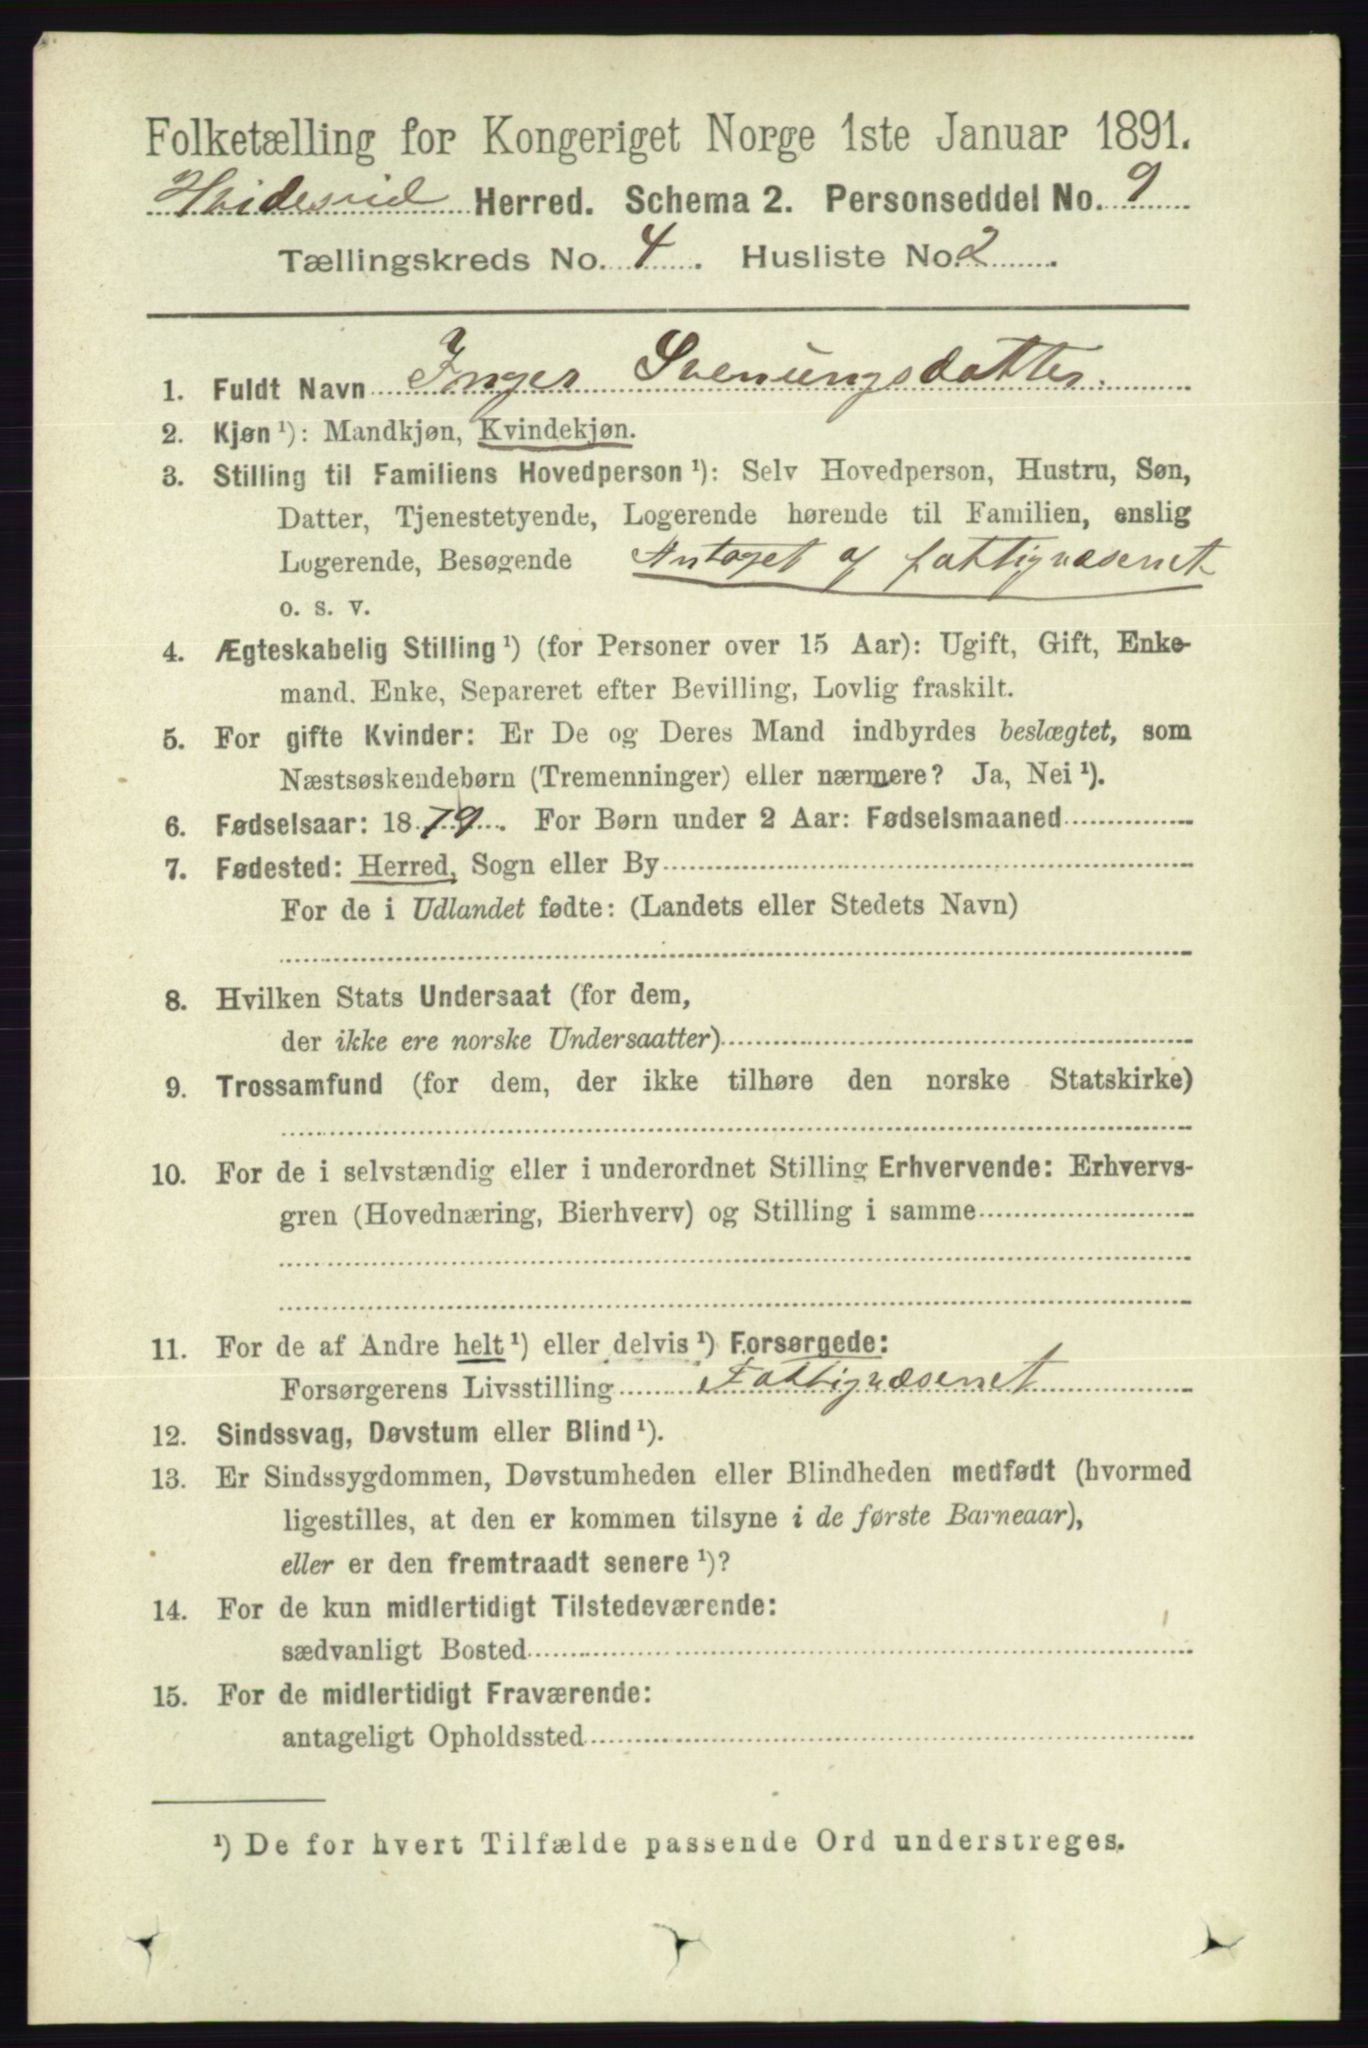 Folketælling for Kongeriget Norge 1ste Januar 1891.
Hvideseid Herred. Schema 2. Personseddel No. 9
Tællingskreds No. 4. Husliste No. 2.
1. Fuldt Navn Inger Svenungsdatter.
2. Kjøn ¹): Mandkjøn, Kvindekjøn.
3. Stilling til Familiens Hovedperson ¹): Selv Hovedperson, Hustru, Søn,
Datter, Tjenestetyende, Logerende hørende til Familien, enslig
Logerende, Besøgende Antaget af fattigvæsenet
o. s. v.
4. Ægteskabelig Stilling ¹) (for Personer over 15 Aar): Ugift, Gift, Enke-
mand, Enke, Separeret efter Bevilling, Lovlig fraskilt.
5. For gifte Kvinder: Er De og Deres Mand indbyrdes beslægtet, som
Næstsøskendebørn (Tremenninger) eller nærmere? Ja, Nei ¹).
6. Fødselsaar: 1879. For Børn under 2 Aar: Fødselsmaaned
7. Fødested: Herred, Sogn eller By
For de i Udlandet fødte: (Landets eller Stedets Navn)
8. Hvilken Stats Undersaat (for dem,
der ikke ere norske Undersaatter)
9. Trossamfund (for dem, der ikke tilhøre den norske Statskirke)
10. For de i selvstændig eller i underordnet Stilling Erhvervende: Erhvervs-
gren (Hovednæring, Bierhverv) og Stilling i samme
11. For de af Andre helt ¹) eller delvis ¹) Forsørgede:
Forsørgerens Livsstilling Fattigvæsenet
12. Sindssvag, Døvstum eller Blind ¹).
13. Er Sindssygdommen, Døvstumheden eller Blindheden medfødt (hvormed
ligestilles, at den er kommen tilsyne i de første Barneaar),
eller er den fremtraadt senere ¹)?
14. For de kun midlertidigt Tilstedeværende:
sædvanligt Bosted
15. For de midlertidigt Fraværende:
antageligt Opholdssted
¹) De for hvert Tilfælde passende Ord understreges.